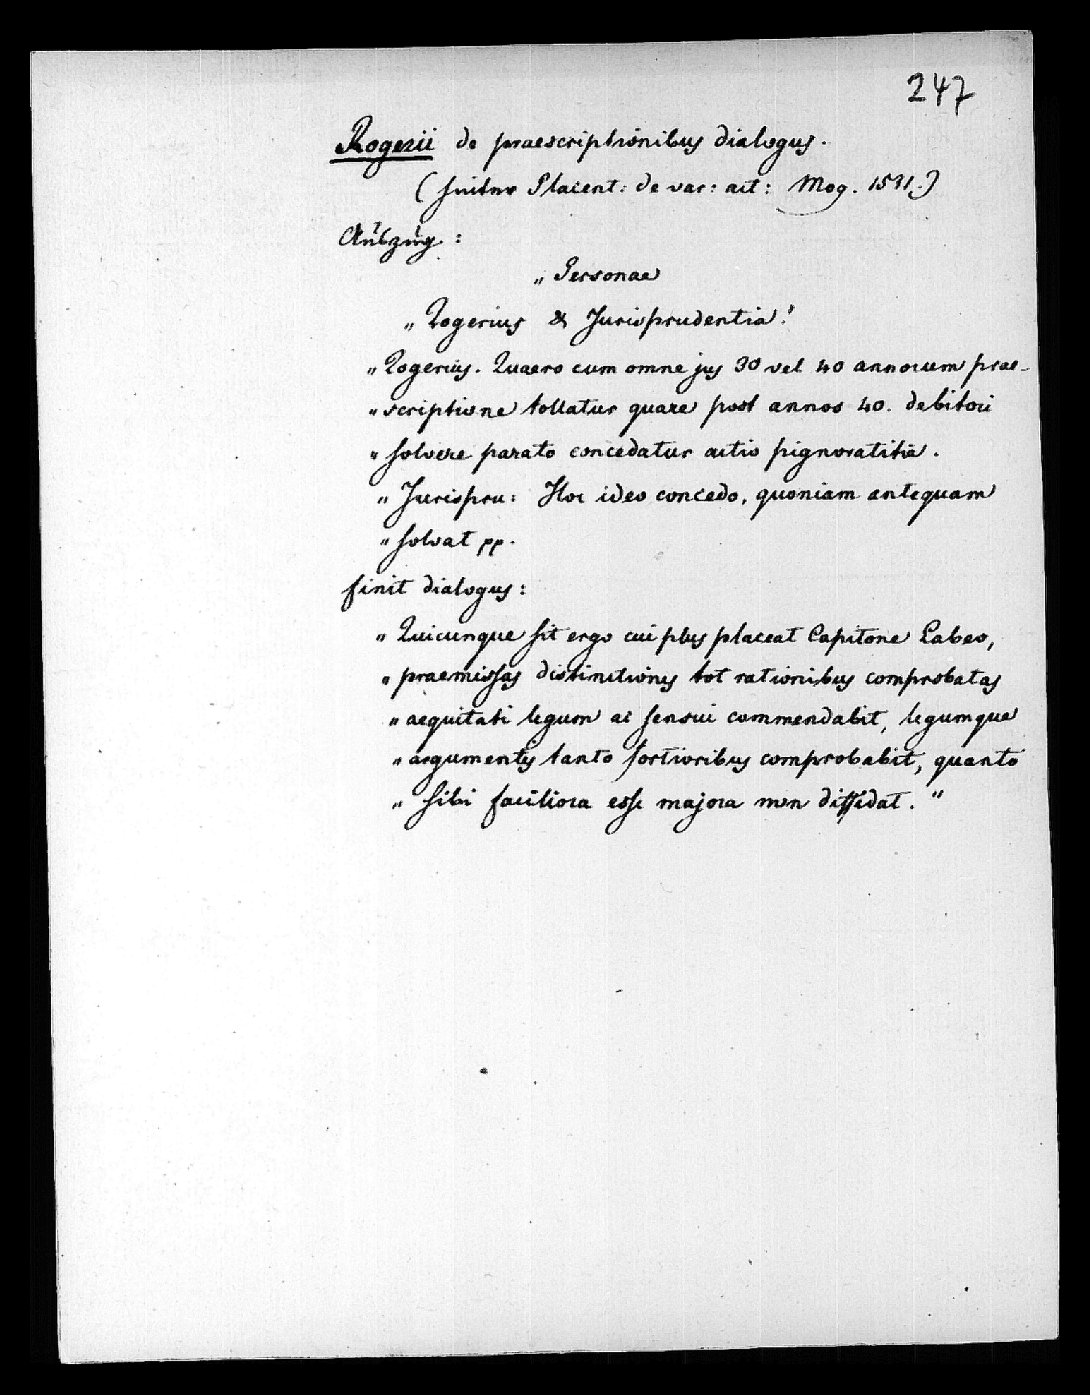 247
Rogerii de praescriptionibus dialogus.
( hinter Placent: de var: act: Mog. 1531.)
Auszug:
„ Personae
„ Rogerius & Jurisprudentia!
„ Rogerius. Quaero cum omne jus 30 vel 40 annorum prae-
„ scriptione tollatur quare post annos 40. debitori
„ solvere parato concedatur actio pignoratitia.
„ Jurispru: Hoc ideo concedo, quoniam antequam
„ solvat pp.
finit dialogus:
„ Quicunque sit ergo cui plus placeat Capitone Labeo,
„ praemissas distinctiones tot rationibus comprobatas
„ aequitati legum ac sensui commendabit, legumque
„ argumentis tanto fortioribus comprobabit, quanto
„ sibi faciliora esse majora non diffidat. "